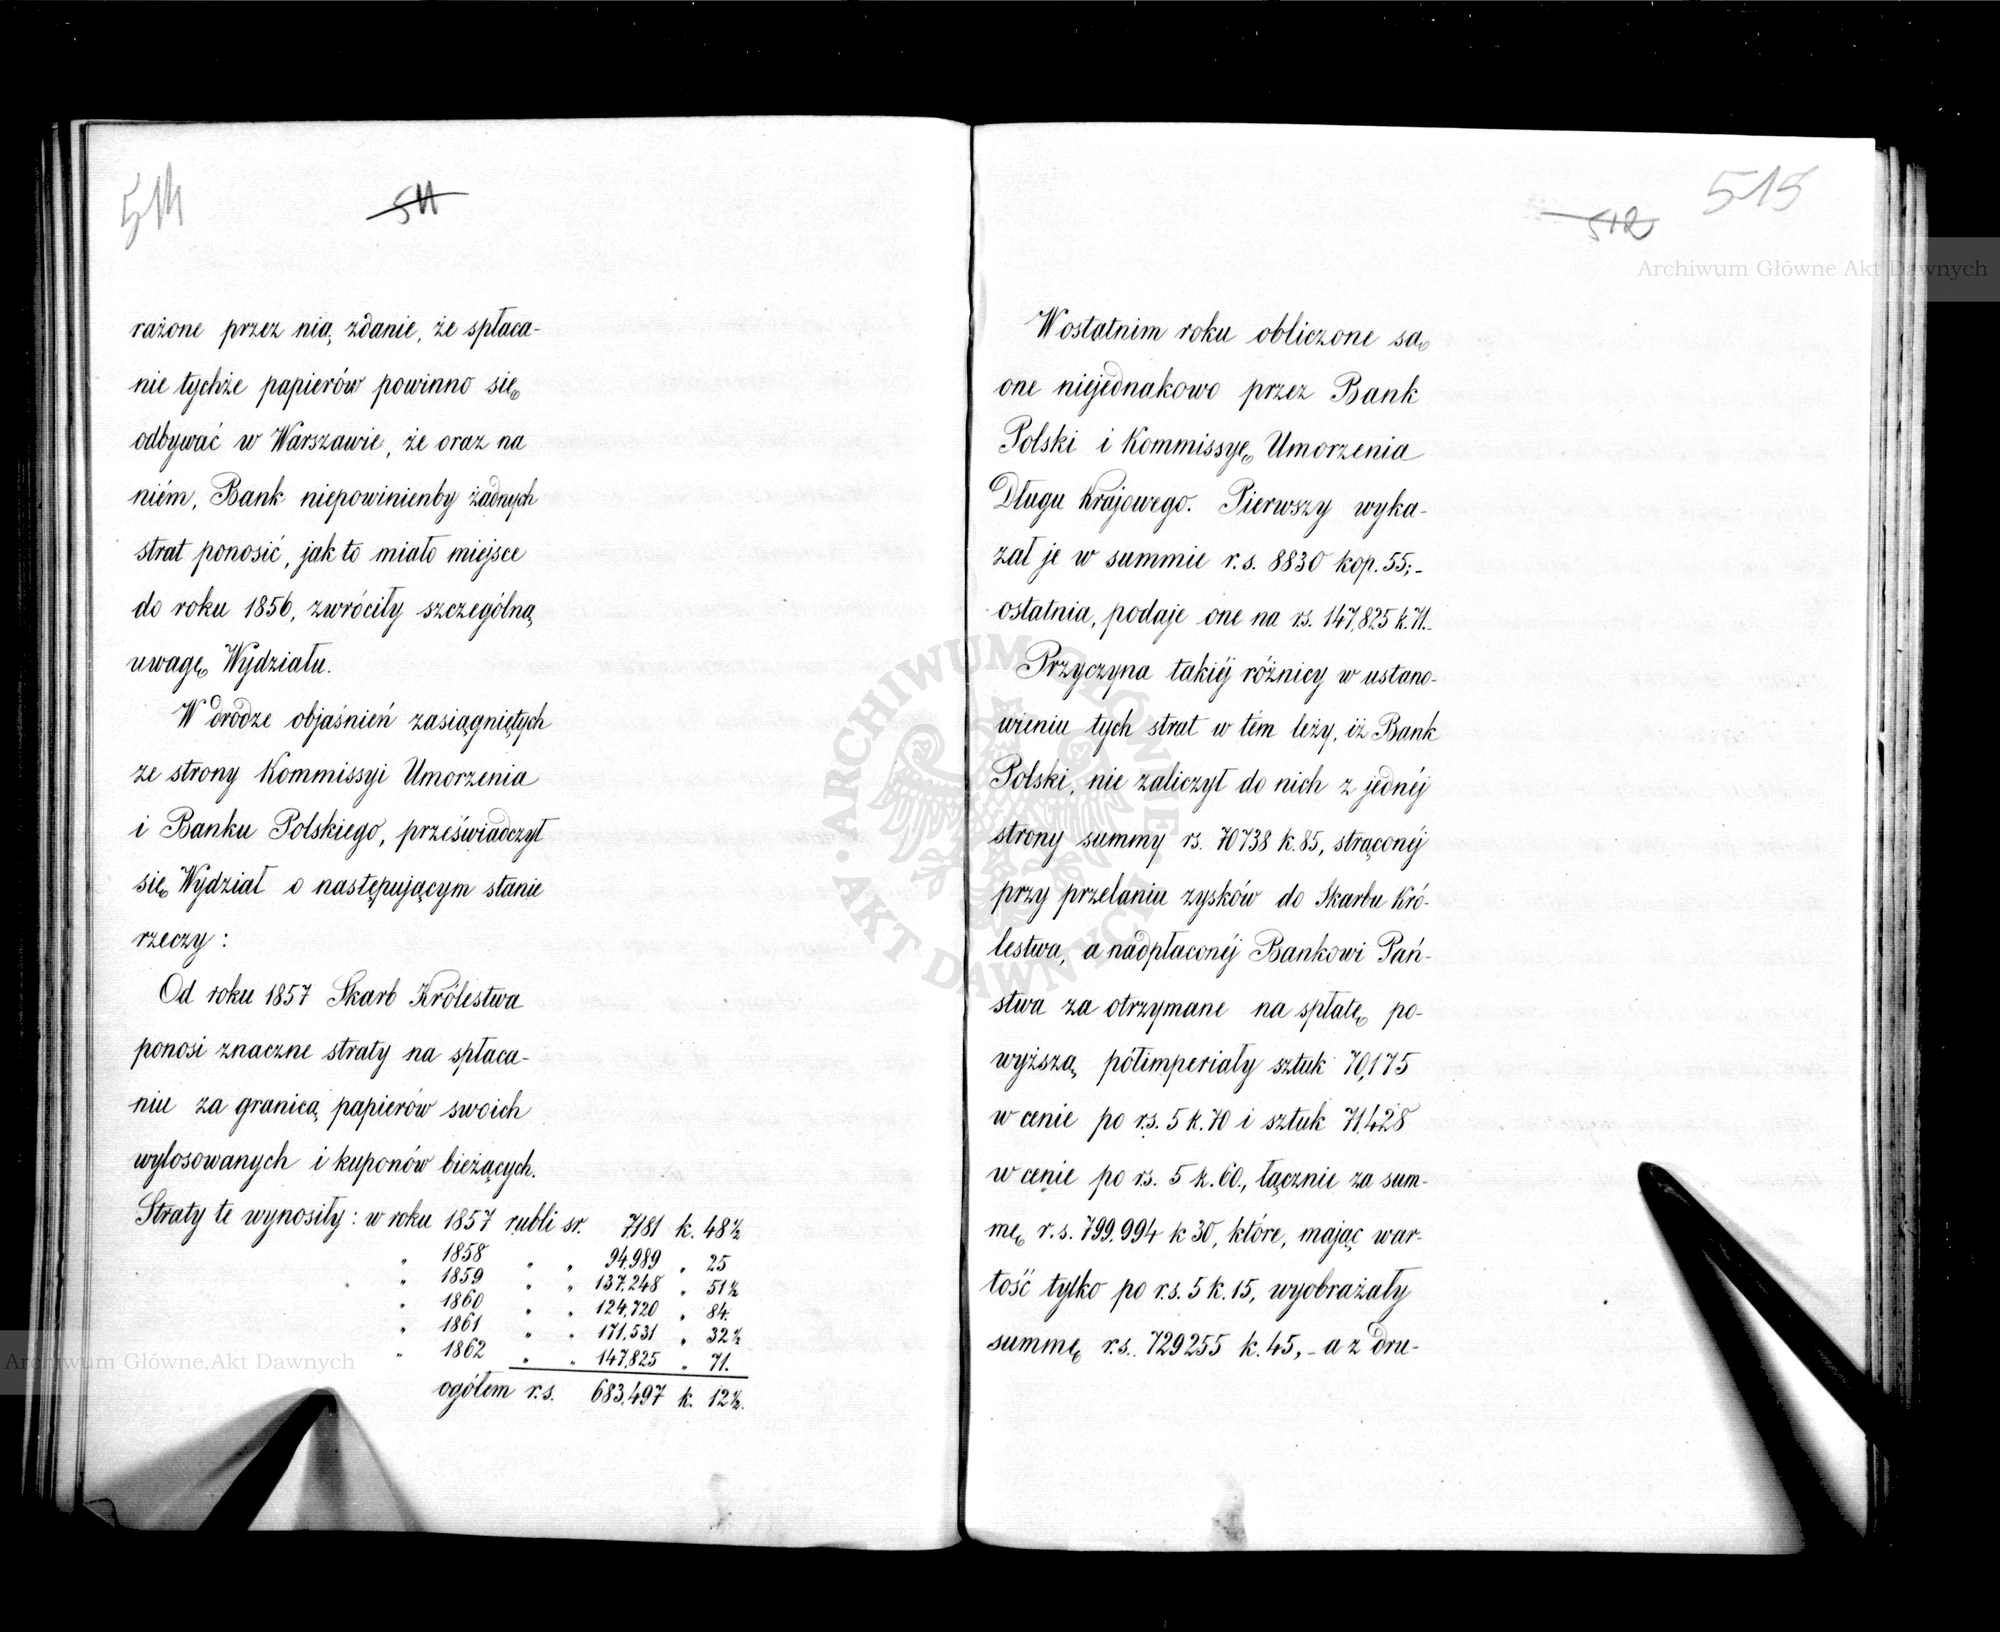 514
511
rażone przez nią, zdanie, że spłaca-
nie tychże papierów powinno się
odbywać w Warszawie, że oraz na
niém, Bank niepowinienby żadnych
strat ponosić, jak to miało miejsce
do roku 1856, zwróciły szczególną
uwagę Wydziału.
W drodze objaśnień zasiągniętych
ze strony Kommissyi Umorzenia
i Banku Polskiego, przeświadczył
się Wydział o następującym stanie
rzeczy:
Od roku 1857 Skarb Królestwa
ponosi znaczne straty na spłaca-
niu za granicą papierów swoich
wylosowanych i kuponów bieżących.
Straty te wynosiły: w roku 1857 rubli sr. 7181 k. 48½
" 1858 " " 94,989 " 25
" 1859 " " 137,248 " 51½
" 1860 " " 124,720 " 84.
" 1861 " " 171,531 " 32½
" 1862 " " 147,825 " 71.
ogółem r.s. 683,497 k. 12½.
515
512
W ostatnim roku obliczone są
one niejednakowo przez Bank
Polski i Kommissyę Umorzenia
Długu Krajowego. Pierwszy wyka-
zał je w summie r.s. 8830 kop. 55;-
ostatnia, podaje one na rs. 147,825 k. 71.
Przyczyna takiéj różnicy w ustano-
wieniu tych strat w tém leży, iż Bank
Polski, nie zaliczył do nich z jednéj
strony summy rs. 70738 k. 85, strąconéj
przy przelaniu zysków do Skarbu Kró-
lestwa, a nadpłaconéj Bankowi Pań-
stwa za otrzymane na spłatę po-
wyższą, półimperiały sztuk 70,175
w cenie po r.s. 5 k. 70 i sztuk 71,428
w cenie po r.s. 5 k. 60., łącznie za sum-
mę r.s. 799.994 k 30, które, mając war-
tość tylko po r.s. 5 k. 15, wyobrażały
summę r.s. 729255 k. 45, - a z dru-
Archiwum Główne Akt Dawnych
ARCHIWUM GŁÓWNE AKT DAWNYCH
Archiwum Główne Akt Dawnych